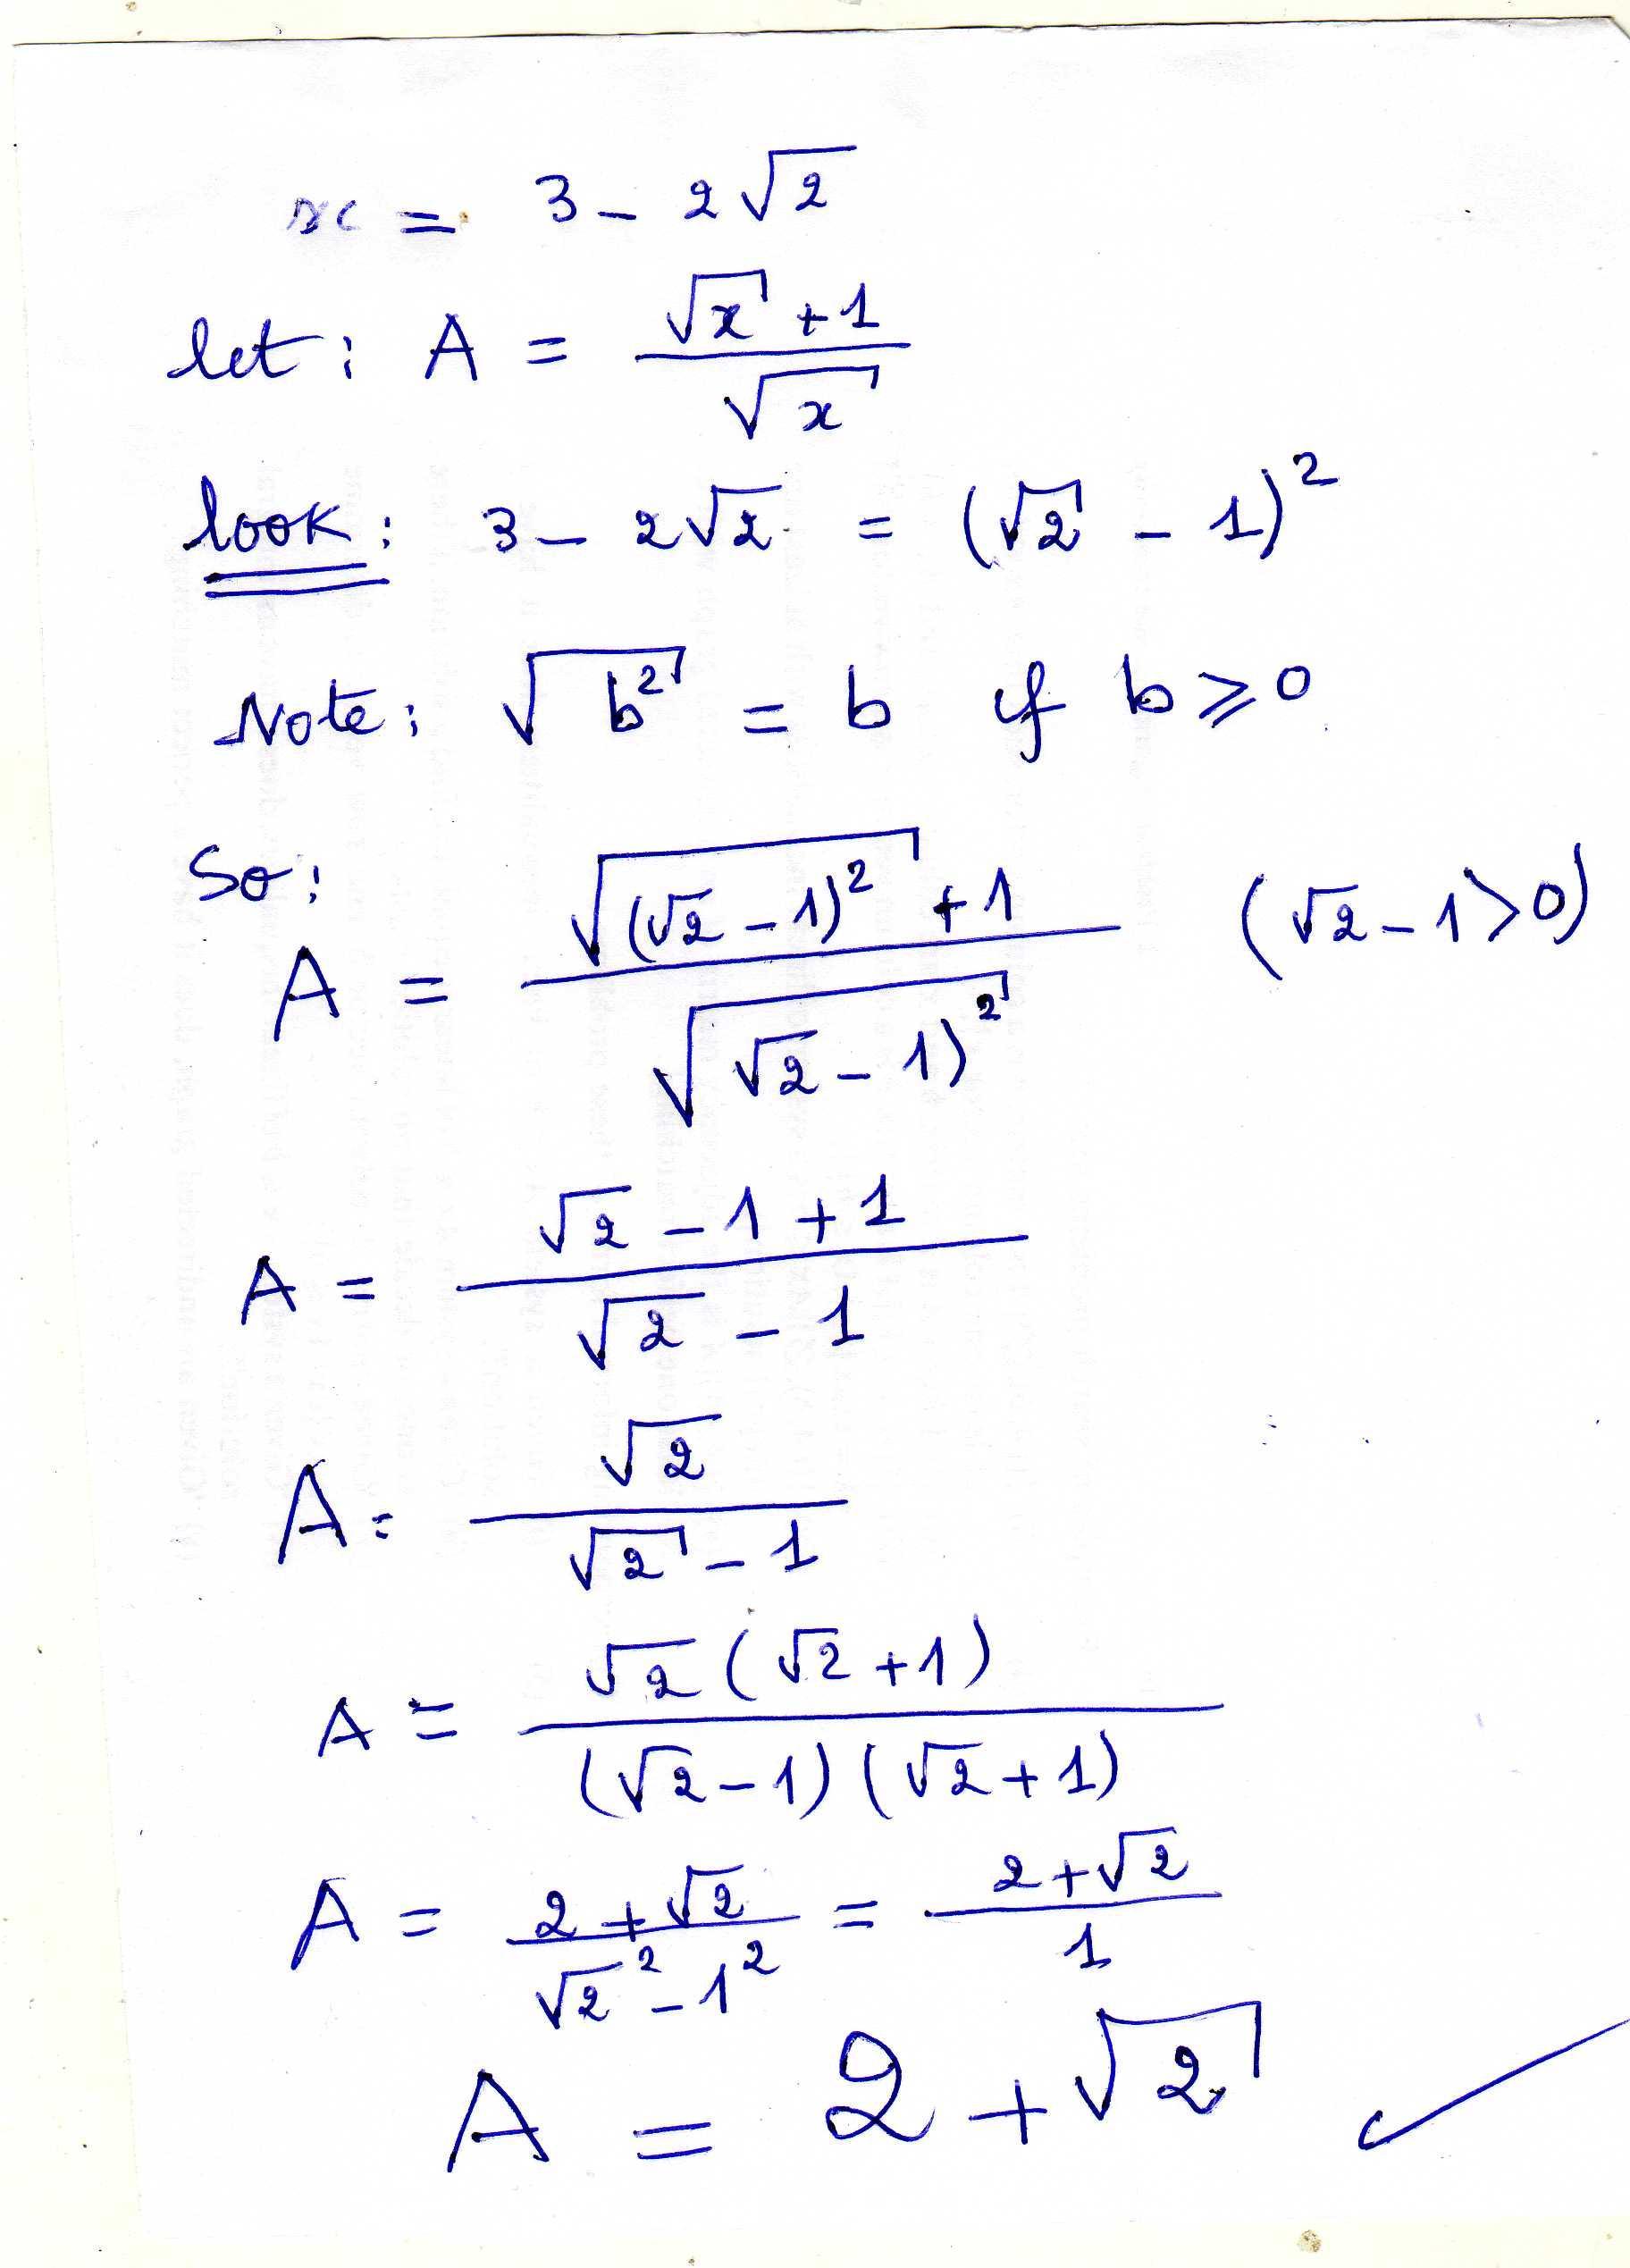 x = 3 - 2√2
let: A = (√x + 1) / √x
look: 3 - 2√2 = (√2 - 1)²
Note: √b² = b if b ⩾ 0
So:
A = (√(√2 - 1)² + 1) / √√2 - 1)² (√2 - 1 > 0)
A = (√2 - 1 + 1) / (√2 - 1)
A = √2 / (√2 - 1)
A = √2 (√2 + 1) / (√2 - 1) (√2 + 1)
A = (2 + √2) / (√2² - 1²) = (2 + √2) / 1
A = 2 + √2 ✓